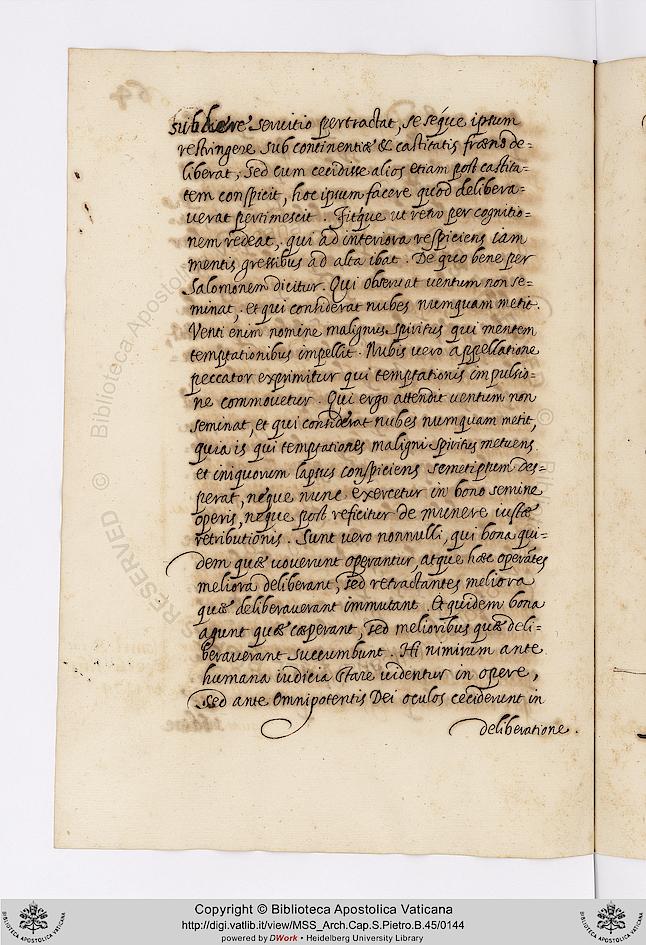 subdere seruitio pertractat, se séque ipsum
restringere sub continentiæ & castitatis fræno de=
liberat; sed cum cecidisse alios etiam post castita=
tem conspicit, hoc ipsum facere quod delibera=
uerat pertimescit. Fitque ut retro per cognitio=
nem redeat, qui ad interiora respiciens iam
mentis gressibus ad alta ibat. De quo bene per
Salomonem dicitur. Qui obseruat uentum non se=
minat, et qui considerat nubes numquam metit.
Venti enim nomine malignus spiritus qui mentem
temptationibus impellit. Nubis vero appellatione
peccator exprimitur qui temptationis impulsio=
ne commouetur. Qui ergo attendit uentum non
seminat, et qui considerat nubes numquam metit,
quia is qui temptationes maligni spiritus metuens
et iniquorum lapsus conspiciens semetipsum des=
perat, neque nunc exercetur in bono semine
operis, neque post reficitur de munere iustæ
retributionis. Sunt vero nonnulli, qui bona qui=
dem quæ uouerunt operantur, atque hæc operātes
meliora deliberant, sed retractantes meliora
quæ deliberauerant immutant. Et quidem bona
agunt quæ cæperant, sed melioribus quæ deli=
berauerant succumbunt. Hi nimirum ante
humana iudicia stare uidentur in opere,
sed ante Omnipotentis Dei oculos ceciderunt in
deliberatione.
Biblioteca Apostolica
©
RESERVED
Copyright © Biblioteca Apostolica Vaticana
http://digi.vatlib.it/view/MSS_Arch.Cap.S.Pietro.B.45/0144
powered by DWork • Heidelberg University Library
BIBLIOTECA APOSTOLICA VATICANA
BIBLIOTECA APOSTOLICA VATICANA